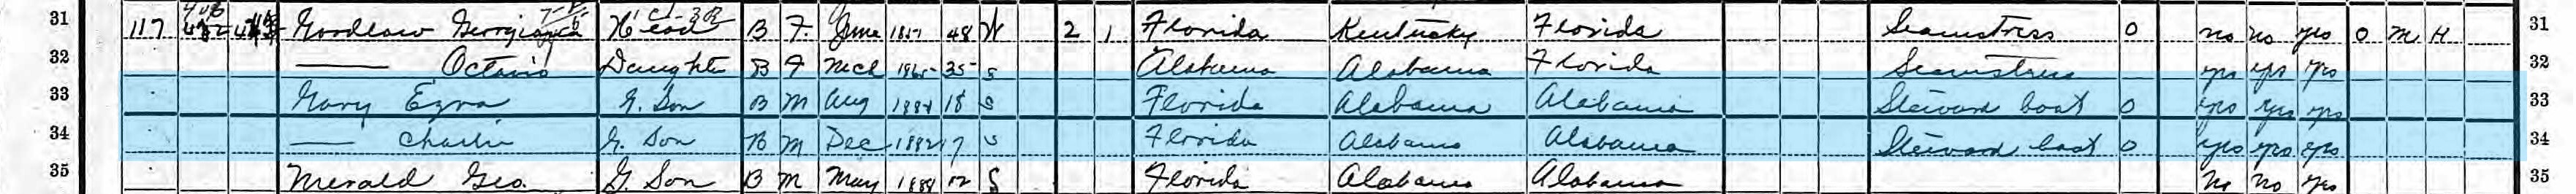 31 117 Goodlow Georgiana Head B F June 1851 48 W 2 1 Florida Kentucky Florida Seamstress 0 no no yes O M H 31
32 — Octavia Daughter B F Mch 1865 35 S Alabama Alabama Florida Seamstress yes yes yes 32
33 Gary Ezra G. Son B M Aug 1881 18 S Florida Alabama Alabama Steward boat 0 yes yes yes 33
34 — Charlie G. Son B M Dec 1882 17 S Florida Alabama Alabama Steward boat 0 yes yes yes 34
35 Merald Geo. G. Son B M May 1888 12 S Florida Alabama Alabama No No Yes 35